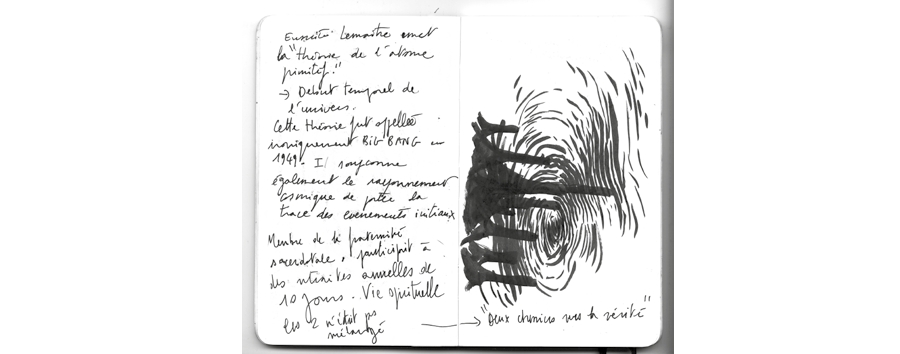 Ensuite Lemaître émet
la "théorie de l'atome
primitif."
→ Début temporel de
l'univers.
Cette théorie fut appelée
ironiquement BIG BANG en
1949. Il soupçonne
également le rayonnement
cosmique de être la
trace des événements initiaux
Membre de la fraternité
sacerdotale, participait à
des retraites annelles de
10 jours. Vie spirituelle
les 2 n'était ps
mélangé
→ "Deux chemins vers la vérité"